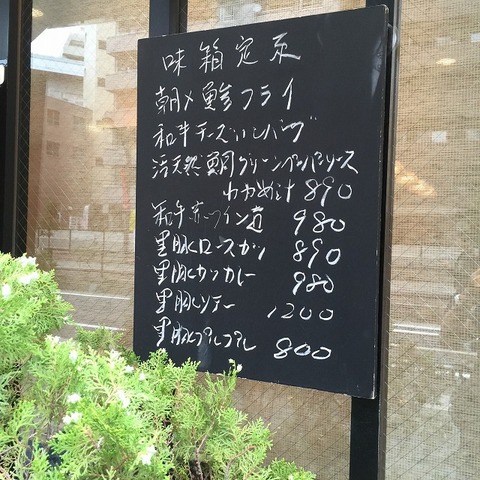 味箱定食
朝〆鯵フライ
和牛チーズハンバーグ
活天然鯛グリーンペッパーソース
わかめ汁 890
和牛赤ワイン煮 980
黒豚ロースカツ 890
黒豚カツカレー 980
黒豚ソテー 1200
黒豚 800